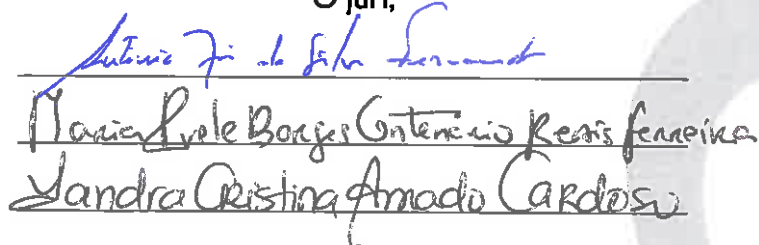 O júri,
António José da Silva Fernandes
Maria Borges Centenário Reais Ferreira
Sandra Cristina Amado Cardoso